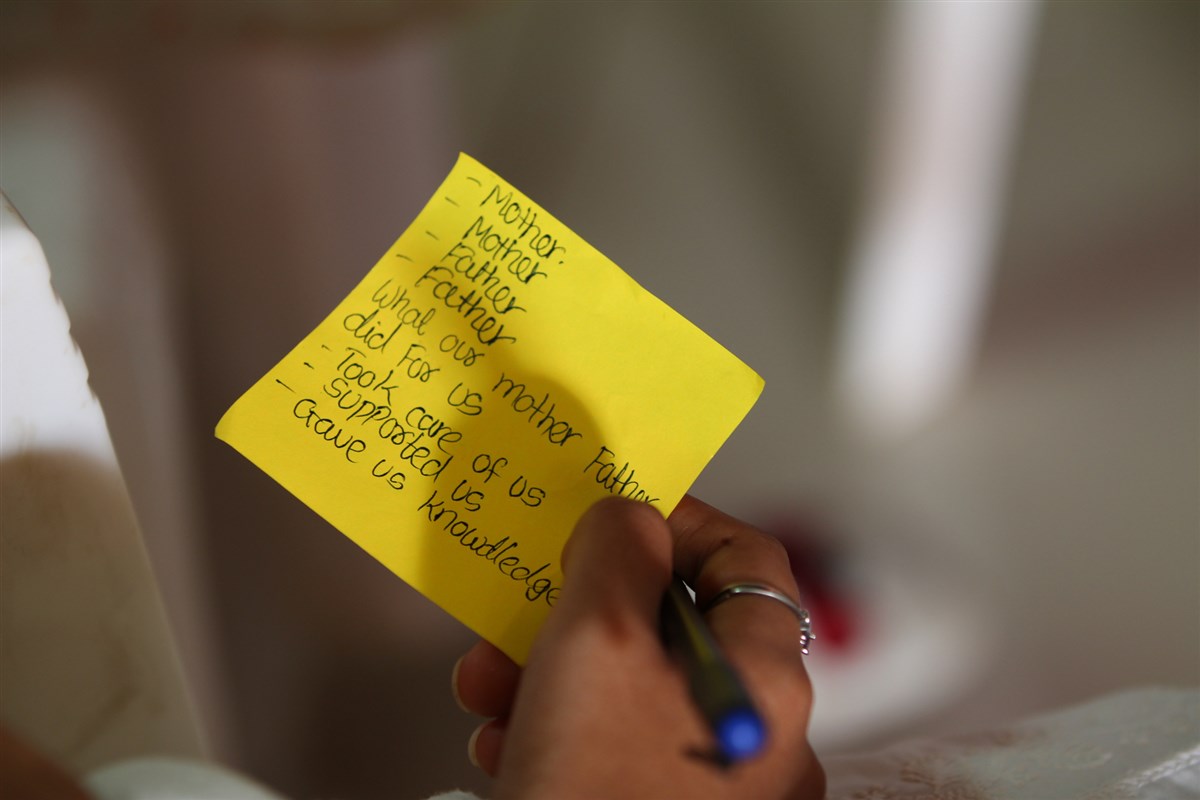 - Mother.
- Mother
- Father
- Father
What our mother Father
did For us
- Took care of us
- Supported us
- Gave us knowdledge